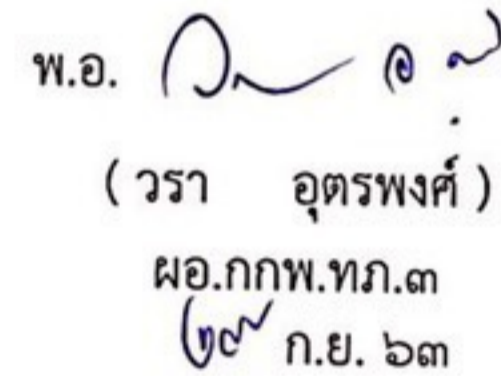 พ.อ.
( วรา อุตรพงศ์ )
ผอ.กกพ.ทภ.๓
ก.ย. ๖๓